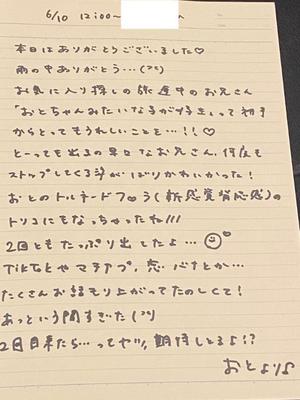 6/10 12:00〜
本日はありがとうございました♡
雨の中ありがとう…
お気に入り探しの旅途中のお兄さん
「おとちゃんみたいな子が好き」って初手
からとってもうれしいことを…!!♡
とーっても出るの早なお兄さん、何度も
ストップしてくる姿がばりかわいかった!
おとのトルネードフ♡う(新感覚
トリコにもなっちゃったね///
2回ともたっぷり出したよ…
TikTokやマチアプ、恋バナとか…
たくさんお話もり上がってたのしくて!
あっという間すぎた
2回目来たら…ってヤツ、期待しとるよ!?
おとより